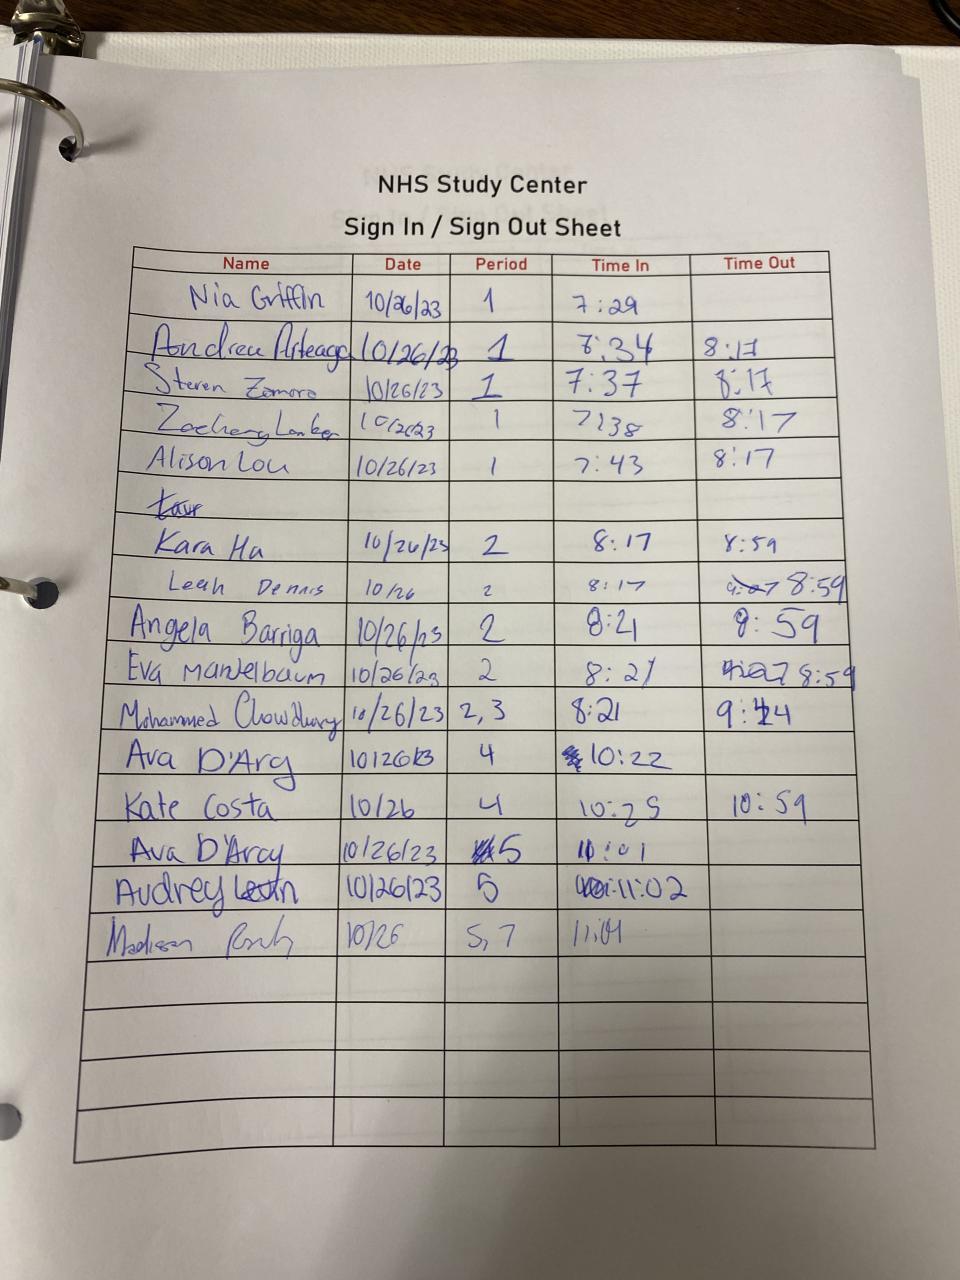 NHS Study Center
Sign In / Sign Out Sheet
Name Date Period Time In Time Out
Nia Griffin 10/26/23 1 7:29
Andrea Arteaga 10/26/23 1 7:34 8:17
Steven Zamora 10/26/23 1 7:37 8:17
10/26/23 1 7:38 8:17
Alison Lou 10/26/23 1 7:43 8:17
Kara Ha 10/26/23 2 8:17 8:59
Leah Dennis 10/26 2 8:17 8:59
Angela Barriga 10/26/23 2 8:21 8:59
Eva Mandelbaum 10/26/23 2 8:21 8:59
Mohammed Chowdhury 10/26/23 2,3 8:21 9:44
Ava D'Arcy 10/26/23 4 10:22
Kate Costa 10/26 4 10:25 10:59
Ava D'Arcy 10/26/23 5 11:01
Audrey Levin 10/26/23 5 11:02
Madison 10/26 5,7 11:04